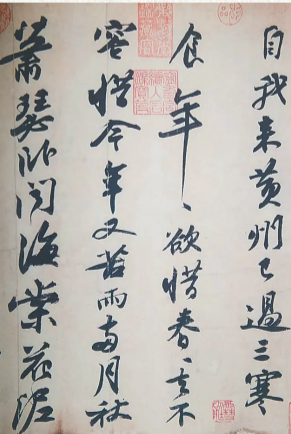 自我来黄州已過三寒
食年〻欲惜春〻去不
容惜今年又苦雨兩月秋
蕭瑟卧聞海棠花泥